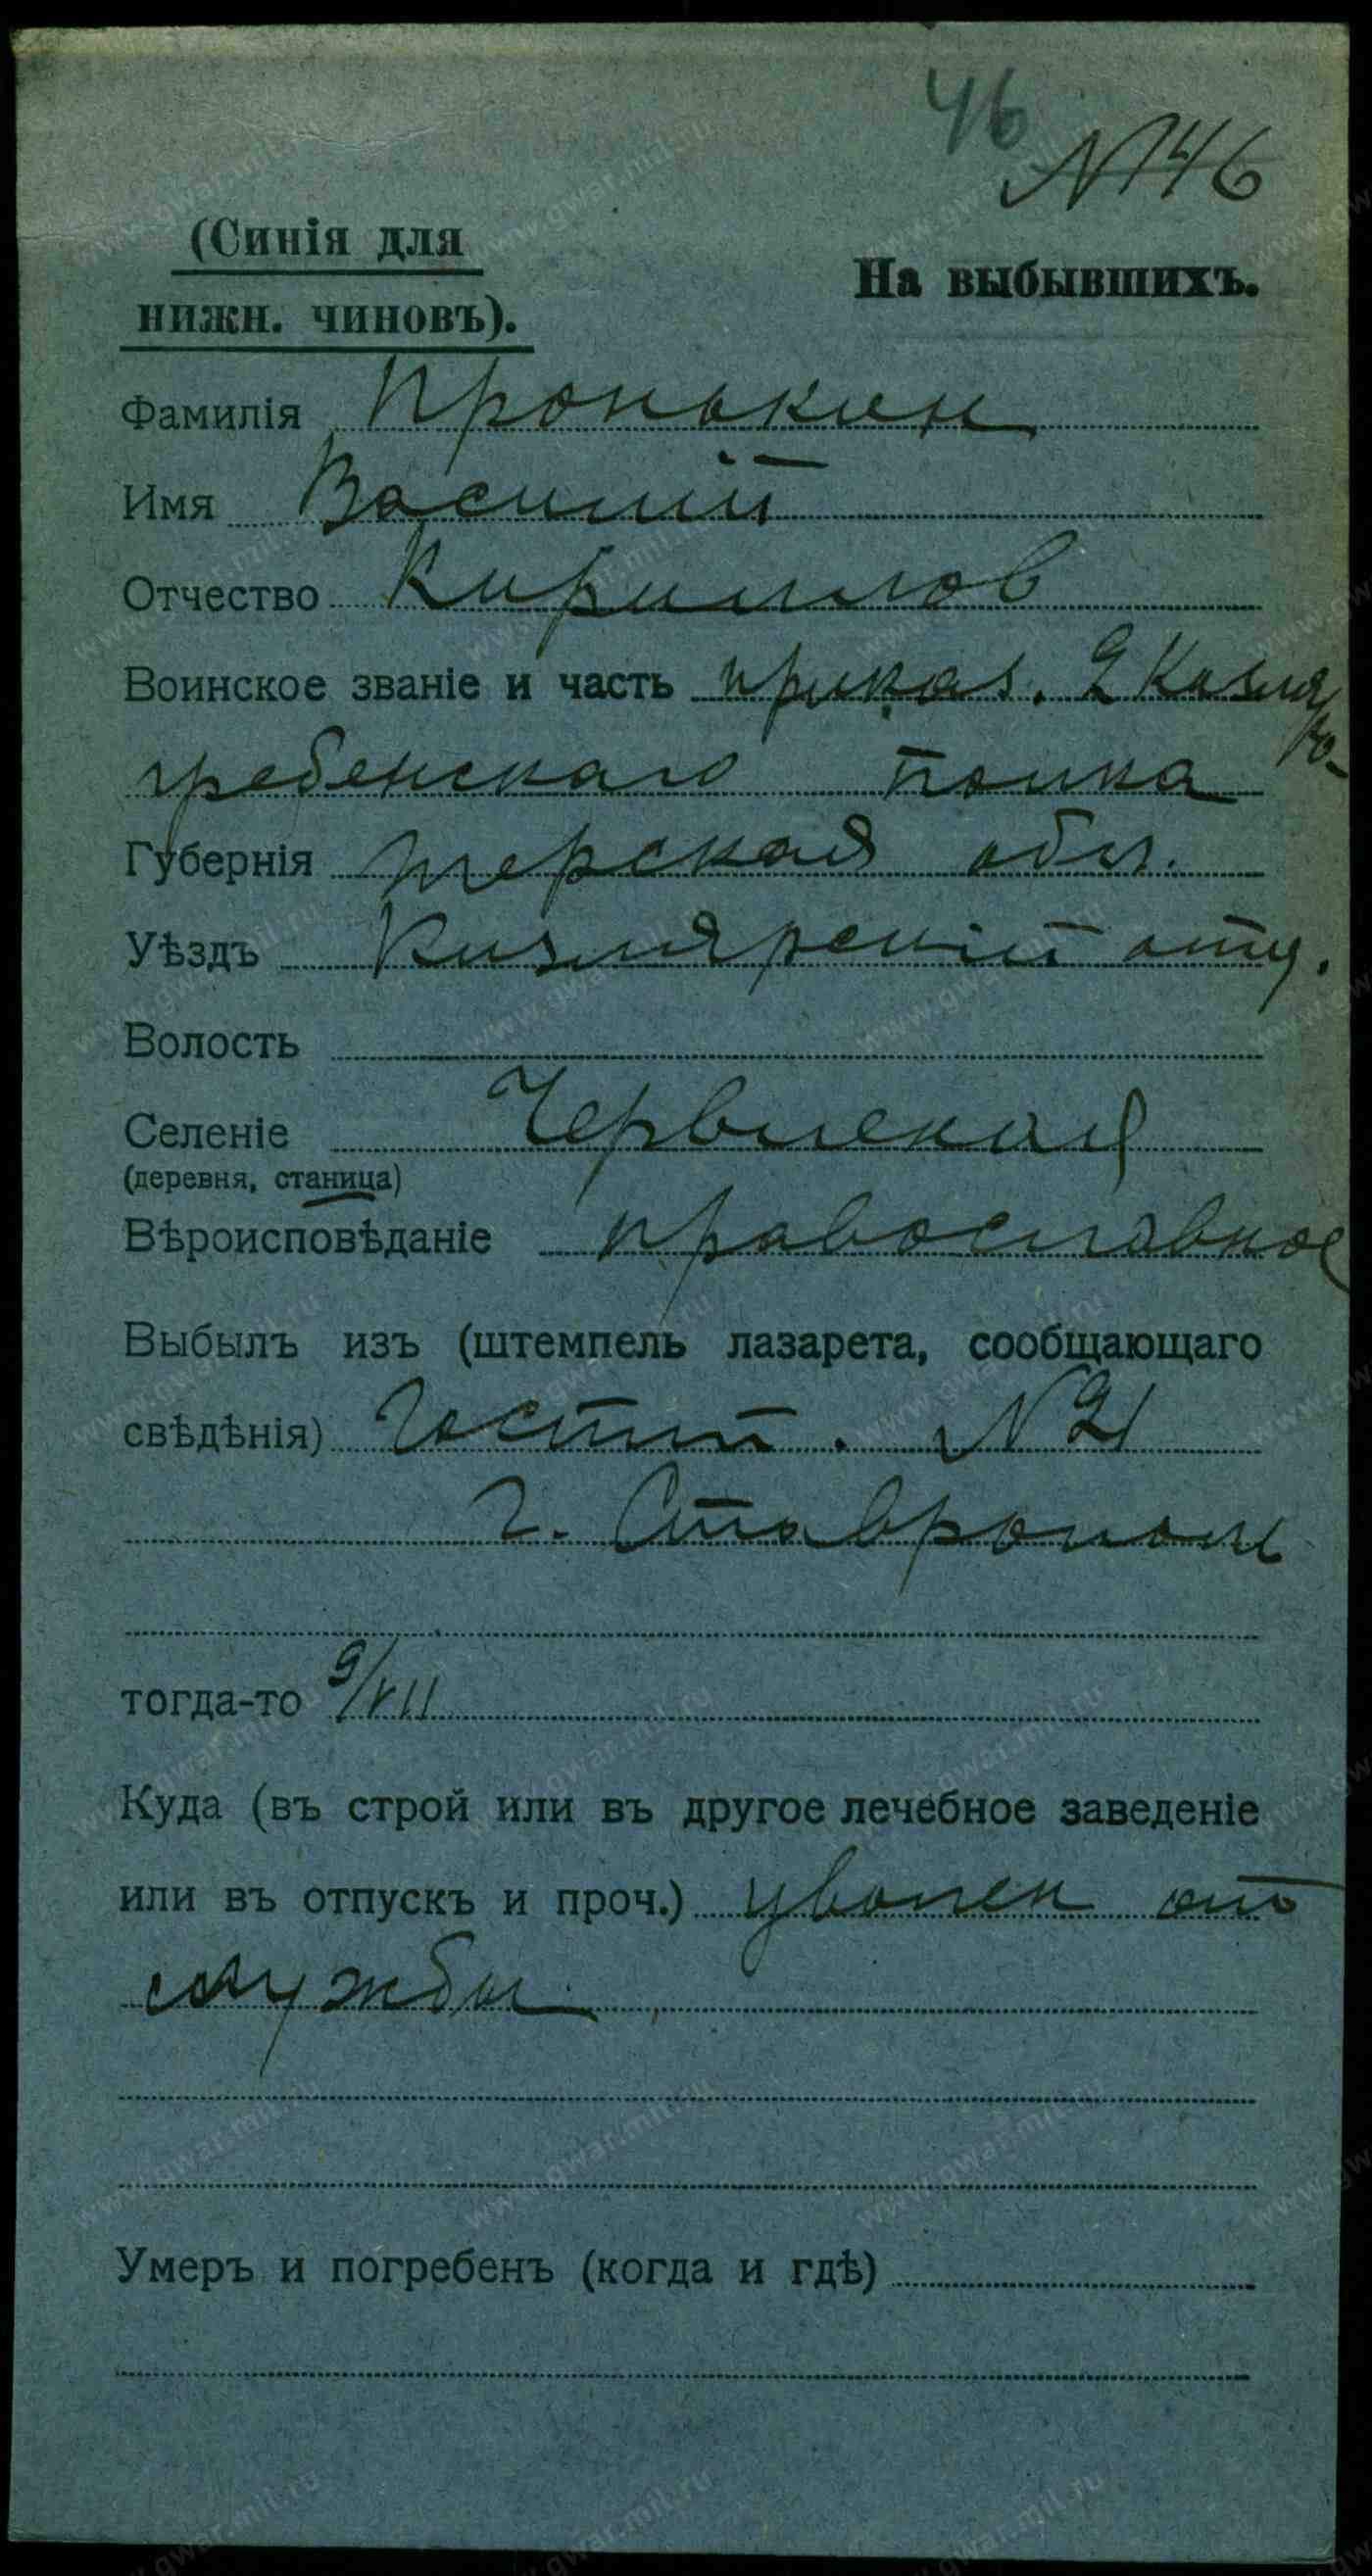 46
№ 146
(Синія для
нижн. чиновъ).
На выбывшихъ.
Фамилія Пронькин
Имя Василій
Отчество Кириллов
Воинское званіе и часть приказ. 2 Кизляро-
гребенскаго полка
Губернія Терская обл.
Уѣздъ Кизлярскій отд.
Волость
Селеніе Червленская
(деревня, станица)
Вѣроисповѣданіе православное
Выбылъ изъ (штемпель лазарета, сообщающаго
свѣдѣнія) Госпит. № 21
г. Ставрополь
тогда-то 9/VII
Куда (въ строй или въ другое лечебное заведеніе
или въ отпускъ и проч.) уволен от
службы
Умеръ и погребенъ (когда и гдѣ)
www.gwar.mil.ru